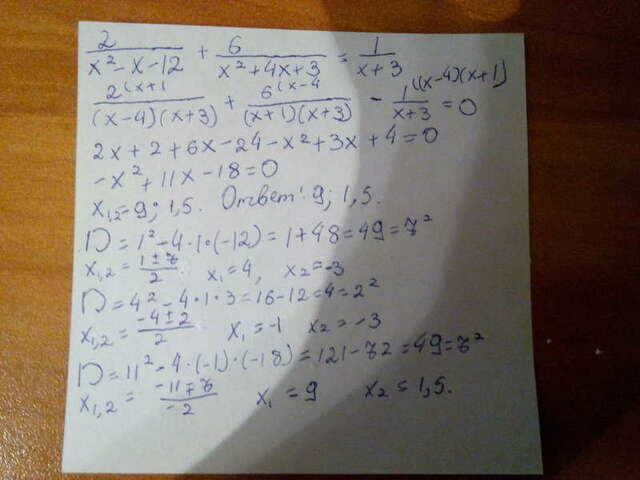 2/(x²-x-12) + 6/(x²+4x+3) = 1/(x+3)
2(x+1/((x-4)(x+3)) + 6(x-4/((x+1)(x+3)) - 1((x-4)(x+1)/(x+3) = 0
2x+2+6x-24-x²+3x+4=0
-x²+11x-18=0
x1,2=9; 1,5. Ответ: 9; 1,5.
D=1²-4·1·(-12)=1+48=49=7²
x1,2=(1±7)/2 x1=4, x2=-3
D=4²-4·1·3=16-12=4=2²
x1,2=(-4±2)/2 x1=-1 x2=-3
D=11²-4·(-1)·(-18)=121-72=49=7²
x1,2=(-11∓7)/-2 x1=9 x2=1,5.